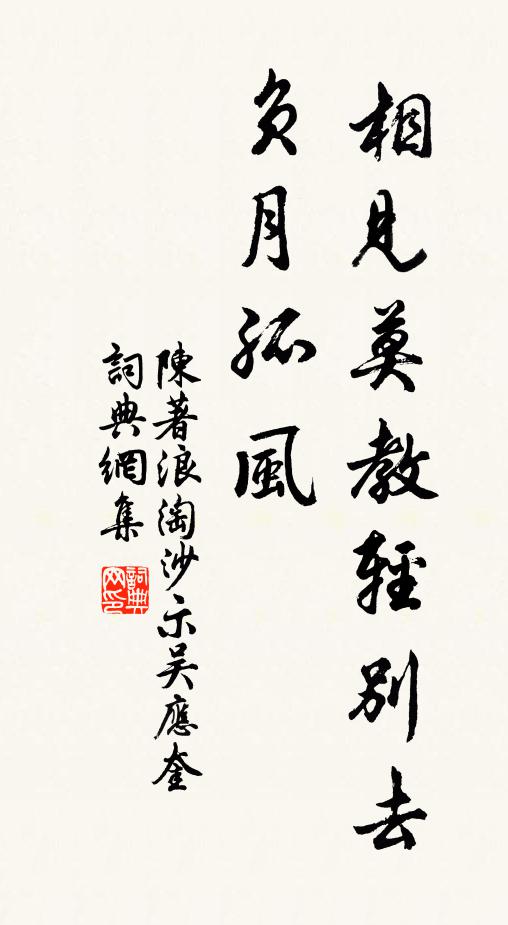 相見莫教輕別去
負月孤風
陳著浪淘沙示吳應奎
詞典網集
詞典网印